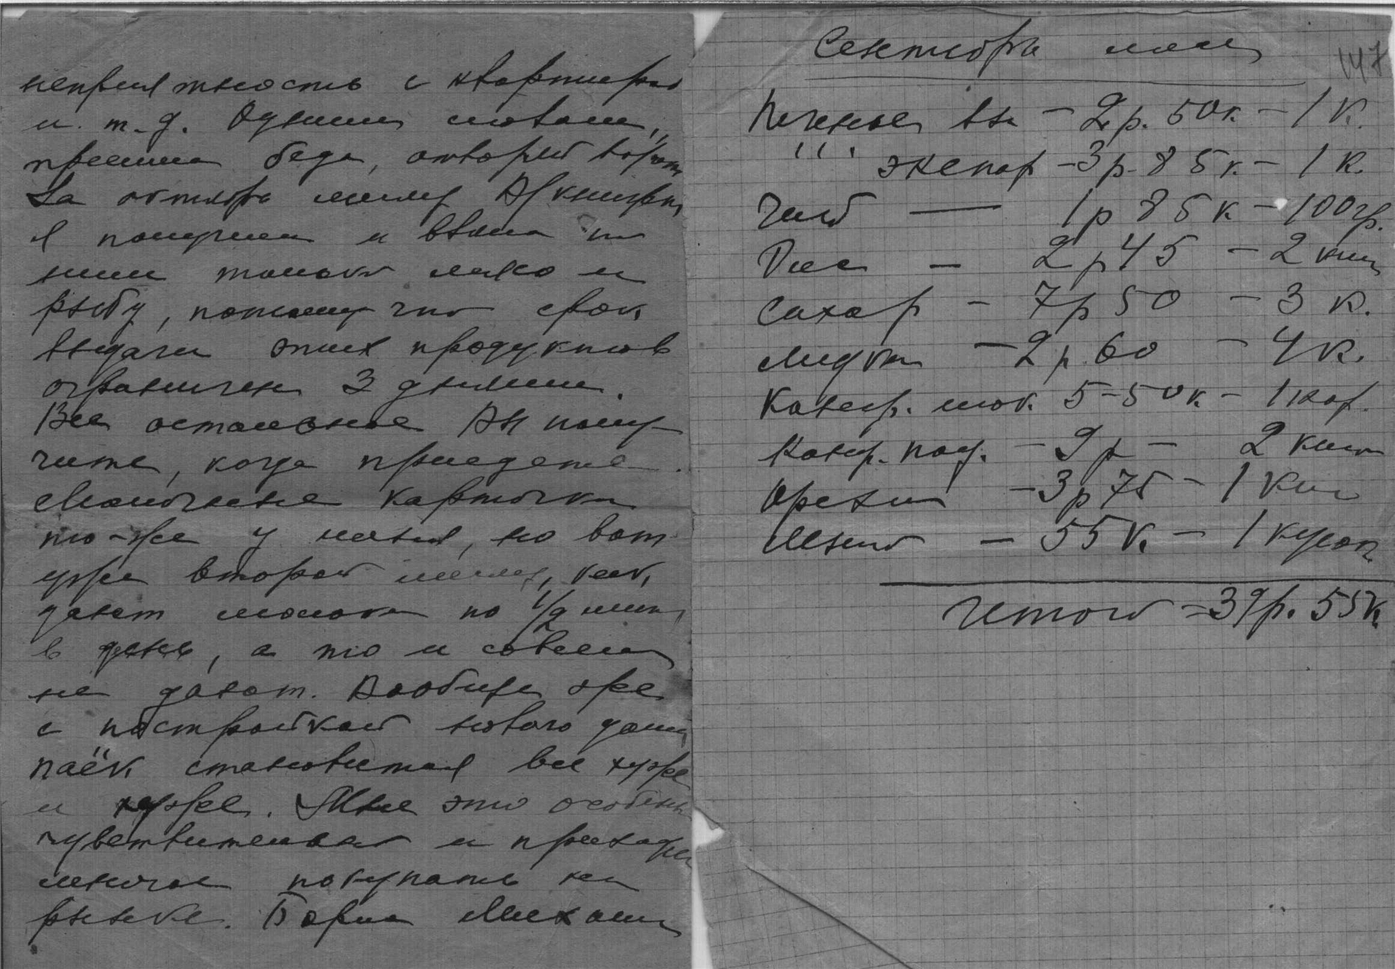 неприятность с квартирой
и т.д. Одним словом, „
пришла беда, отворяй ворота
За октябрь месяц В/книжку
я получил и взяла по
ним только мясо и
рыбу, потому что срок
выдачи этих продуктов
ограничен 3 днями.
Все остальное Вы полу
чите, когда приедете.
Молочные карточки
то-же у меня, но вот
уже второй месяц, как
дают молоко по 1/2 литр
в день, а то и совсем
не дают. Вообще же
с постройкой нового дома
паёк становится все хуже
и хуже. Мне это особенно
чувствительно и приходи
многое покупать на
рынке. Борис Михай
Сентябрь месяц 147
Печенье вы – 2 р. 50к. – 1 К.
''' экспор – 3 р. 85 к. – 1 к.
Чай — 1 р 85 к – 100 гр.
Рис – 2 р 45 – 2 кил
Сахар – 7 р 50 – 3 К.
Мука – 2 р. 60 – 4 К.
Конф. шок. 5-50 к. – 1 кор.
Конф. под. – 9 р – 2 кил
Орехи – 3 р 75 – 1 Кил
Мыло – 55 К. – 1 кусок
Итого = 39 р. 55 К